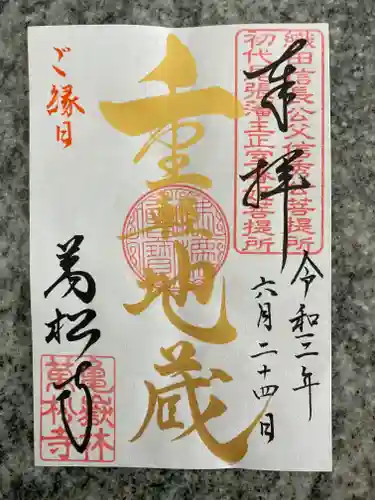 織田信長公父信秀公菩提所
初代尾張藩主正室春姫菩提所
奉拝
令和三年
六月二十四日
重軽地蔵
ご縁日
萬松寺
亀嶽林
萬松寺